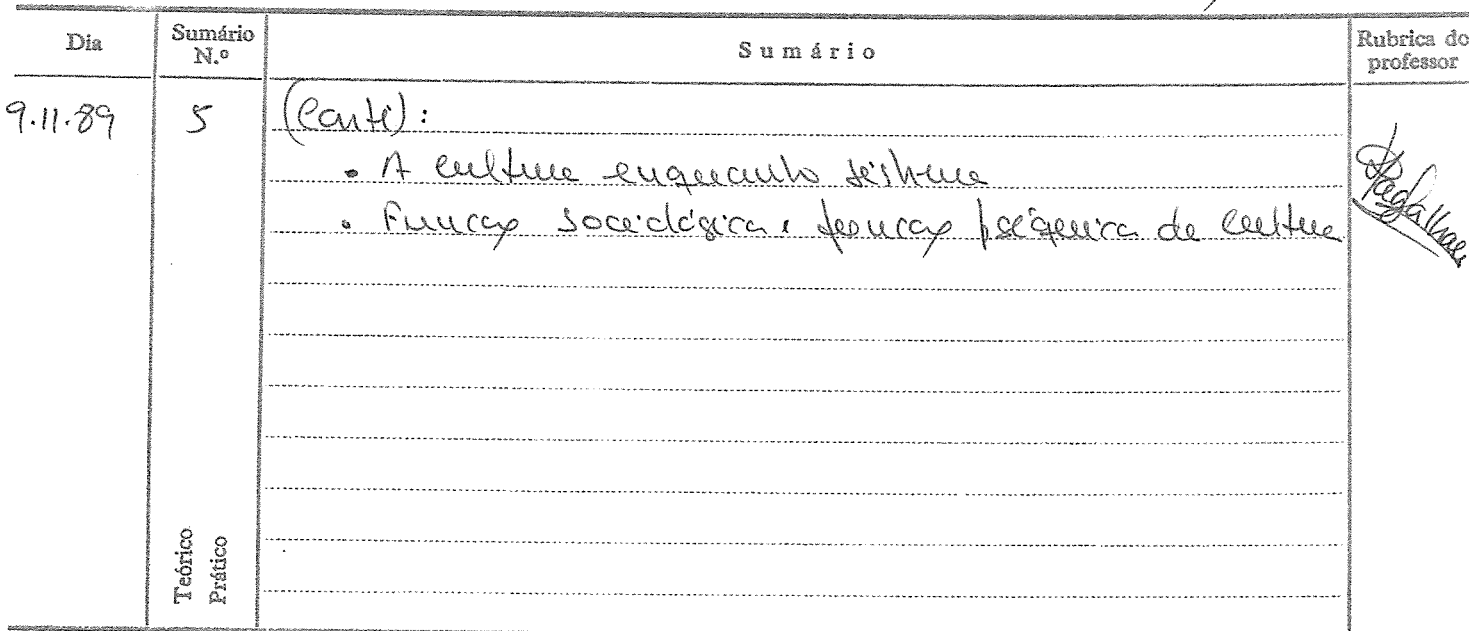 Dia Sumário N.º Sumário Rubrica do professor
9.11.89 5 (Conti):
• A cultura enquanto sistema
• Função sociológica e função psíquica da cultura
Teórico
Prático